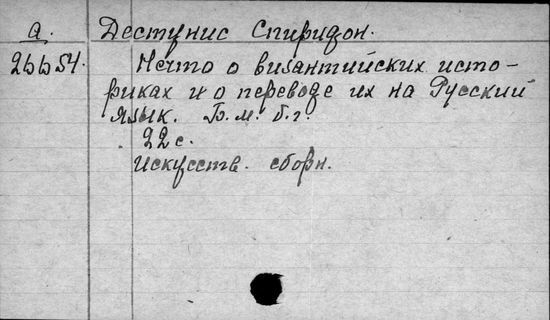 а. Дестунис Спиридон.
26654. Нечто о византийских исто-
риках и о переводе их на Русский
язык. Б. м. б. г.
22 с.
Искусств. сборн.